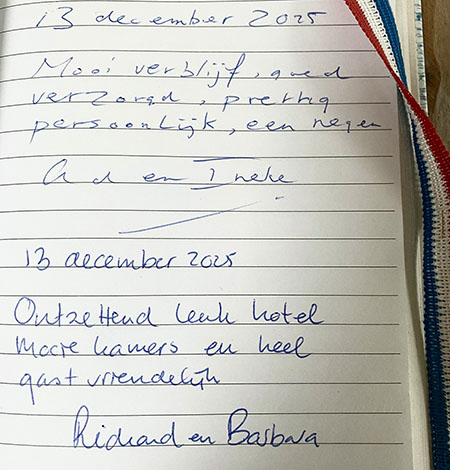 13 december 2025
Mooi verblijf, goed
verzorgd, prettig
persoonlijk, een negen
Ad en Ineke
13 december 2025
Ontzettend leuk hotel
mooie kamers en heel
gastvriendelijk
Richard en Barbara